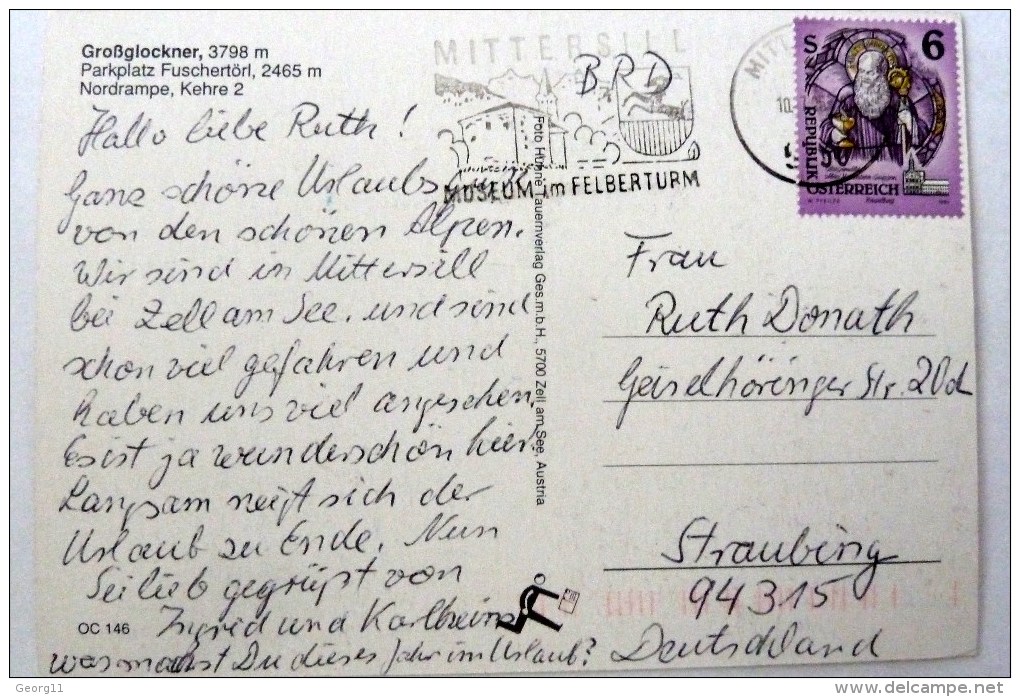 Großglockner, 3798 m
Parkplatz Fuschertörl, 2465 m
Nordrampe, Kehre 2
Hallo liebe Ruth!
Ganz schöne Urlaubs
von den schönen Alpen.
Wir sind in Mittersill
bei Zell am See. und sind
schon viel gefahren und
haben uns viel angesehen.
Es ist ja wunderschön hier.
Langsam neigt sich der
Urlaub zu Ende. Nun
Sei lieb gegrüßt von
Ingrid und Karlheinz
was machst Du dieses Jahr im Urlaub?
OC 146
Foto Huhne Tauernverlag Ges.m.b.H., 5700 Zell am See, Austria
MITTERSILL
BRD
MUSEUM im FELBERTURM
S 6
REPUBLIK
ÖSTERREICH
Frau
Ruth Donath
Geiselhöringer Str. 20d
Straubing
94315
Deutschland
Georg11
www.delcampe.net